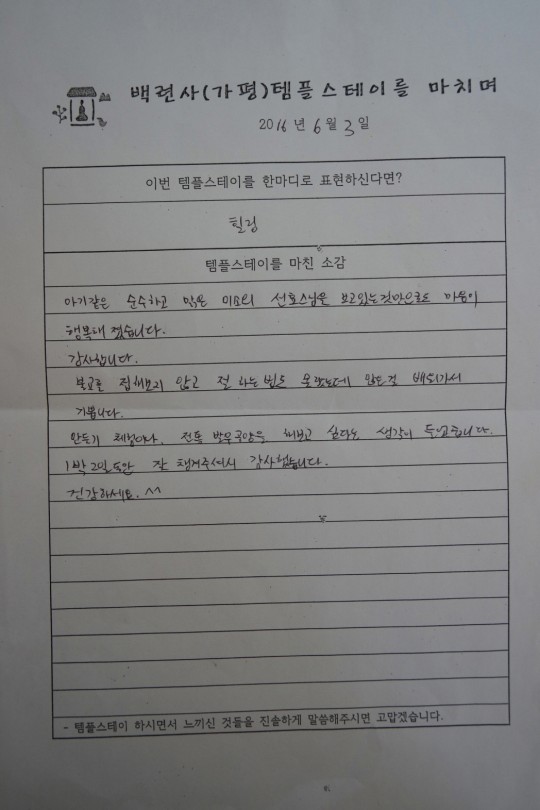 백련사(가평)템플스테이를 마치며
2016년 6월 3일
이번 템플스테이를 한마디로 표현하신다면?
힐링
템플스테이를 마친 소감
아기같은 순수하고 맑은 미소의 선호스님은 보고있는것만으로도 마음이
행복해 졌습니다.
감사합니다.
불교를 접해보지 않고 절 하는 법도 몰랐는데 많은걸 배워가서
기쁩니다.
만들기 체험이나. 전통 발우공양을 해보고 싶다는 생각이 듭니다.
1박 2일동안 잘 챙겨주셔서 감사했습니다.
건강하세요. ^^
- 템플스테이 하시면서 느끼신 것들을 진솔하게 말씀해주시면 고맙겠습니다.